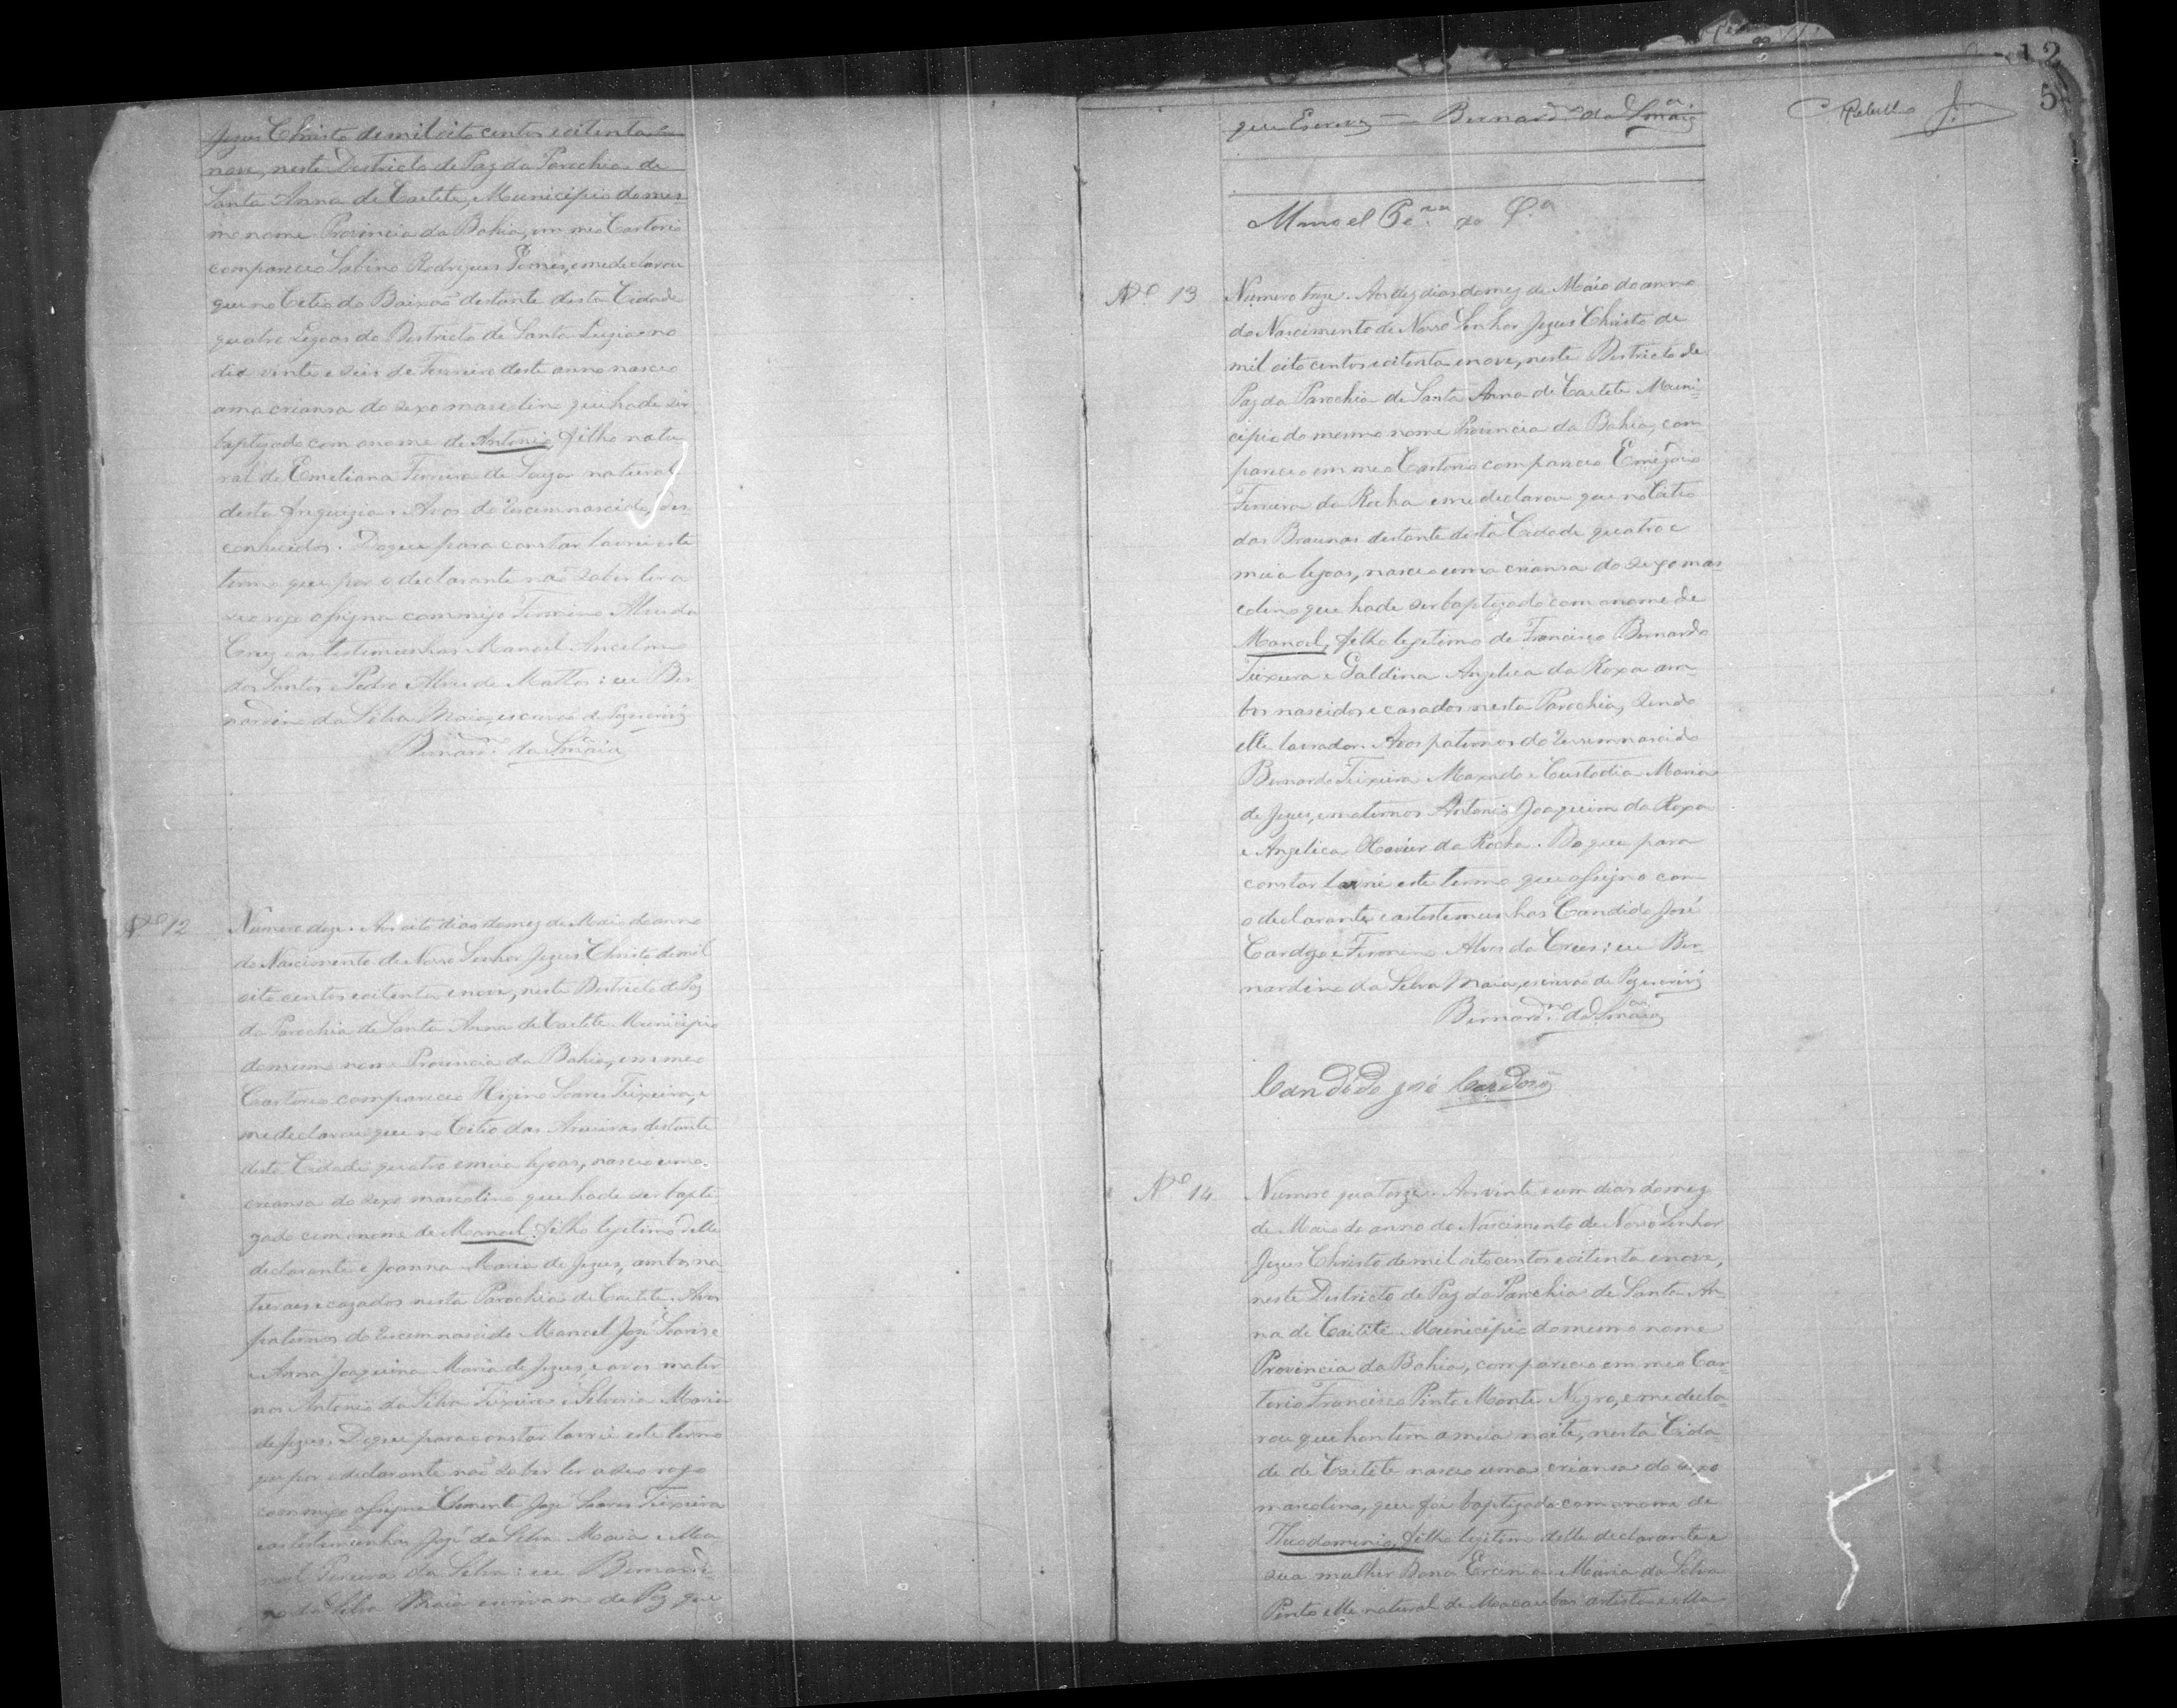 Jezus Christo de mil oito centos e oitenta e
nove, neste Destricto de Paz da Parochia de
Santa Anna de Caetete, Municipio do mes-
mo nome Provincia da Bahia, em meo Cartorio
compareceo Sabino Rodrigues Gomes, e me declarou
que no Citio do Baixaõ destante desta Cidade
quatro Legoas do Destricto de Santa Luzia no
dia vinte e seis de Fevreiro deste anno nasceo
uma criansa do sexo mascolino que hade ser
baptizado com o nome de Antonio, filho natu
ral de Emeliana Ferreira de Souza natural
desta freguizia. Avos do Recemnascido, des
conhecidos. Do que para constar lavrei este
termo que por o declarante naõ saber ler a
seo rogo assigna commigo Firmino Alves da
Cruz e as testemunhas Manoel Ancelmo
dos Santos e Pedro Alves de Mattos: eu Ber
nardino da Silva Maia, escrivaõ de Paz escrivi
Bernard.no da S.a Maia
Nº 12
Numero doze. Aos oito dias do mez de Maio do anno
do Nascimento de Nosso Senhor Jezus Christo de mil
oito centos e oitenta e nove, neste Destricto de Paz
da Parochia de Santa Anna de Caetete Municipio
do mesmo nome Provincia da Bahia, em meo
Cartorio compareceo Higino Soares Teixeira, e
me declarou que no Citio das Aroeiras destante
desta Cidade quatro e meia legoas, nasceo uma
criansa do sexo mascolino que hade ser bapti
zado com o nome de Manoel, filho legitimo delle
declarante e Joanna Maria de Jezus, ambos na-
turaes e cazados nesta Parochia de Caetete. Avos
paternos do Recemnascido Manoel José Soares e
Anna Joaquina Maria de Jezus, e avos mater
nos Antonio da Silva Teixeira e Silveria Maria
de Jezus. Do que para constar lavrei este termo
que por o declarante naõ saber ler a seo rogo
commigo assigna Clemente José Soares Teixeira
e as testemunhas José da Silva Maia e Ma-
noel Pereira da Silva: eu Bernardi
no da Silva Maia escrivam de Paz que
que Escrevy — Bernard.no da S.a Maia
Rebello Jr
12
5
Manoel Per.ra da S.a
Nº 13
Numero treze. Aos dez dias do mez de Maio do anno
do Nascimento de Nosso Senhor Jezus Christo de
mil oito centos e oitenta e nove, neste Destricto de
Paz da Parochia de Santa Anna de Caetete Muni-
cipio do mesmo nome Provincia da Bahia, com-
pareceo em meo Cartorio compareceo Emigdio
Ferreira da Rocha e me declarou que no Citio
das Braunas destante desta Cidade quatro e
meia legoas, nasceo uma criansa do sexo mas
colino que hade ser baptizado com o nome de
Manoel, filho legitimo de Francisco Bernardo
Teixeira e Galdina Angelica da Roxa am-
bos nascidos e casados nesta Parochia, sendo
elle lavrador. Avos paternos do Recemnascido
Bernardo Teixeira Maxado e Custodia Maria
de Jezus, e maternos Antonio Joaquim da Roxa
e Angelica Xavier da Rocha. Do que para
constar lavrei este termo que assigno com
o declarante e as testemunhas Candido José
Cardozo e Firmino Alves da Cruz: eu Ber-
nardino da Silva Maia, escrivaõ de Paz escrivi
Bernard.no da S.a Maia
Candido José Cardoso
Nº 14
Numero quatorze. Aos vinte e um dias do mez
de Maio do anno do Nascimento de Nosso Senhor
Jezus Christo de mil oito centos e oitenta e nove,
neste Destricto de Paz da Parochia de Santa An-
na de Caetité Municipio do mesmo nome
Provincia da Bahia, compareceo em meo Car-
torio Francisco Pinto Monte Negro, e me decla-
rou que hontem a meia noite, nesta Cida-
de de Caetete nasceo uma criansa do sexo
mascolino, que foi baptizado com o nome de
Theodomiro, filho legitimo delle declarante e
sua mulher Dona Ercina Maria da Silva
Pinto elle natural de Macaubas artista e ella